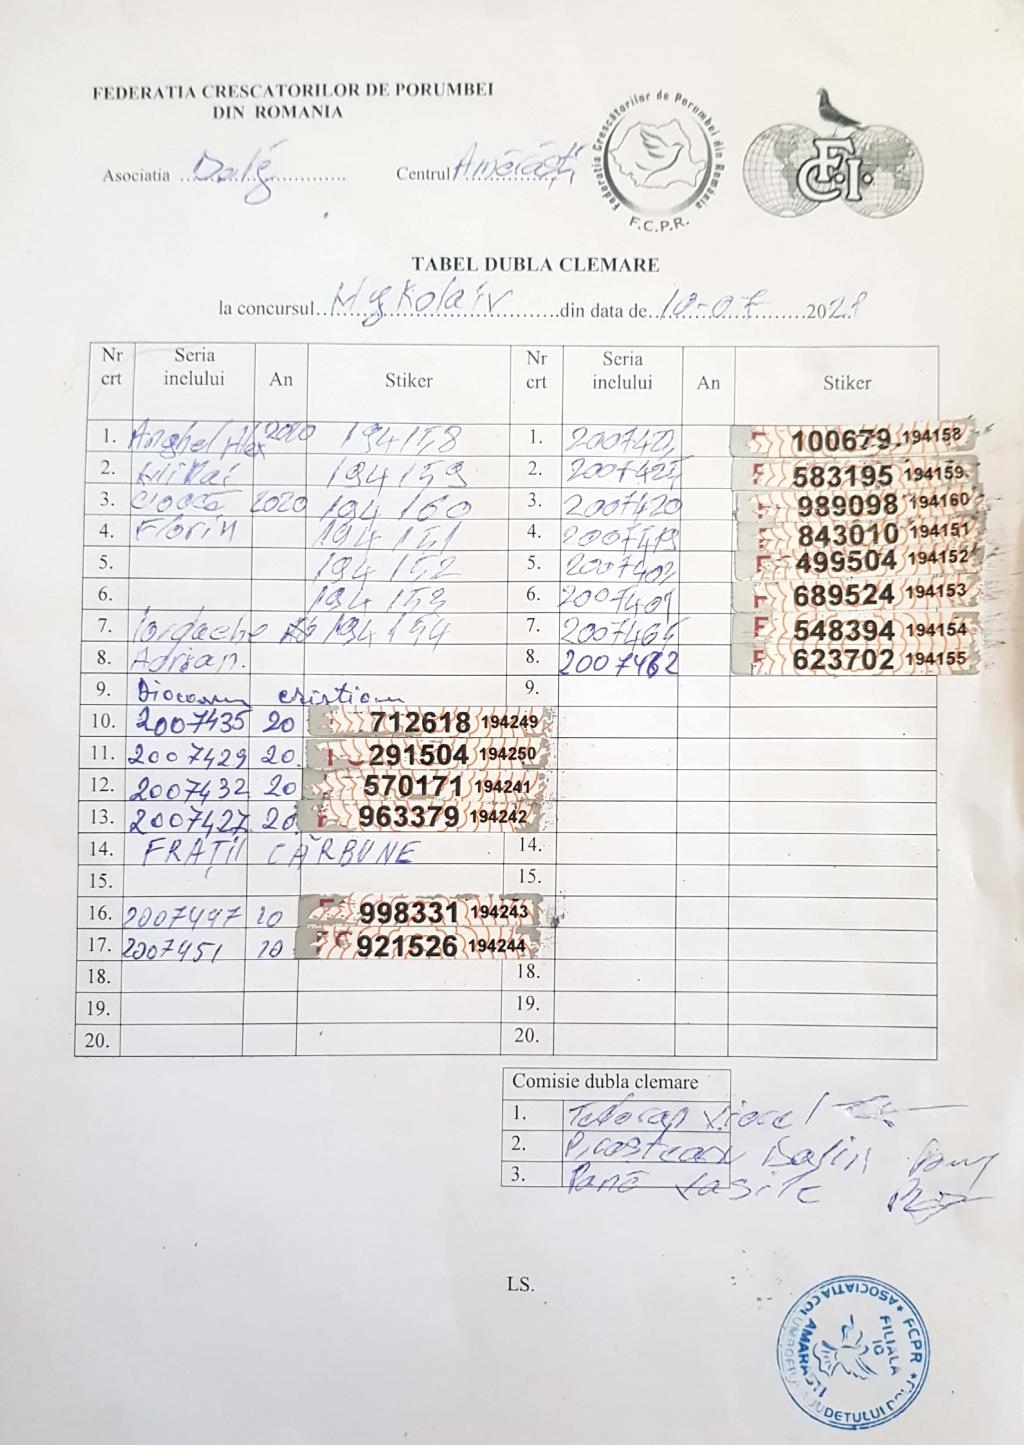 FEDERATIA CRESCATORILOR DE PORUMBEI
DIN ROMANIA
Asociatia Dolj Centrul Amărăști
Federatia Crescătorilor de Porumbei din România
F.C.P.R.
F.C.I.
TABEL DUBLA CLEMARE
la concursul Mykolaiv din data de 10-07 2021
Nr crt Seria inelului An Stiker Nr crt Seria inelului An Stiker
1. Anghel Alex 2020 194158 1. 100679 194158
2. Mihai 194159 2. 583195 194159
3. Cioacă 2020 194160 3. 2007420 989098 194160
4. Florin 194151 4. 2007419 843010 194151
5. 194152 5. 2007402 499504 194152
6. 194153 6. 2007401 689524 194153
7. Iordache 194154 7. 2007465 548394 194154
8. Adrian. 8. 2007462 623702 194155
9. Cristian 9.
10. 2007435 20 712618 194249
11. 2007429 20 291504 194250
12. 2007432 20 570171 194241
13. 2007427 20 963379 194242
14. FRAȚII CĂRBUNE 14.
15. 15.
16. 2007447 20 998331 194243
17. 2007451 20 921526 194244
18. 18.
19. 19.
20. 20.
Comisie dubla clemare
1. Viorel
2. Dalin
3. Pană Vasile
LS.
ASOCIATIA COLUMBOFILA JUDETULUI DOLJ
FCPR
FILIALA
10
AMARASTI